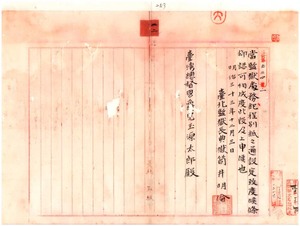 當監獄處務規程別紙之通設定致度候條
御認可相成度此段及上申候也
明治三十三年十二月三日
臺北監獄長典獄筒井明
臺灣總督男爵兒玉源太郎殿